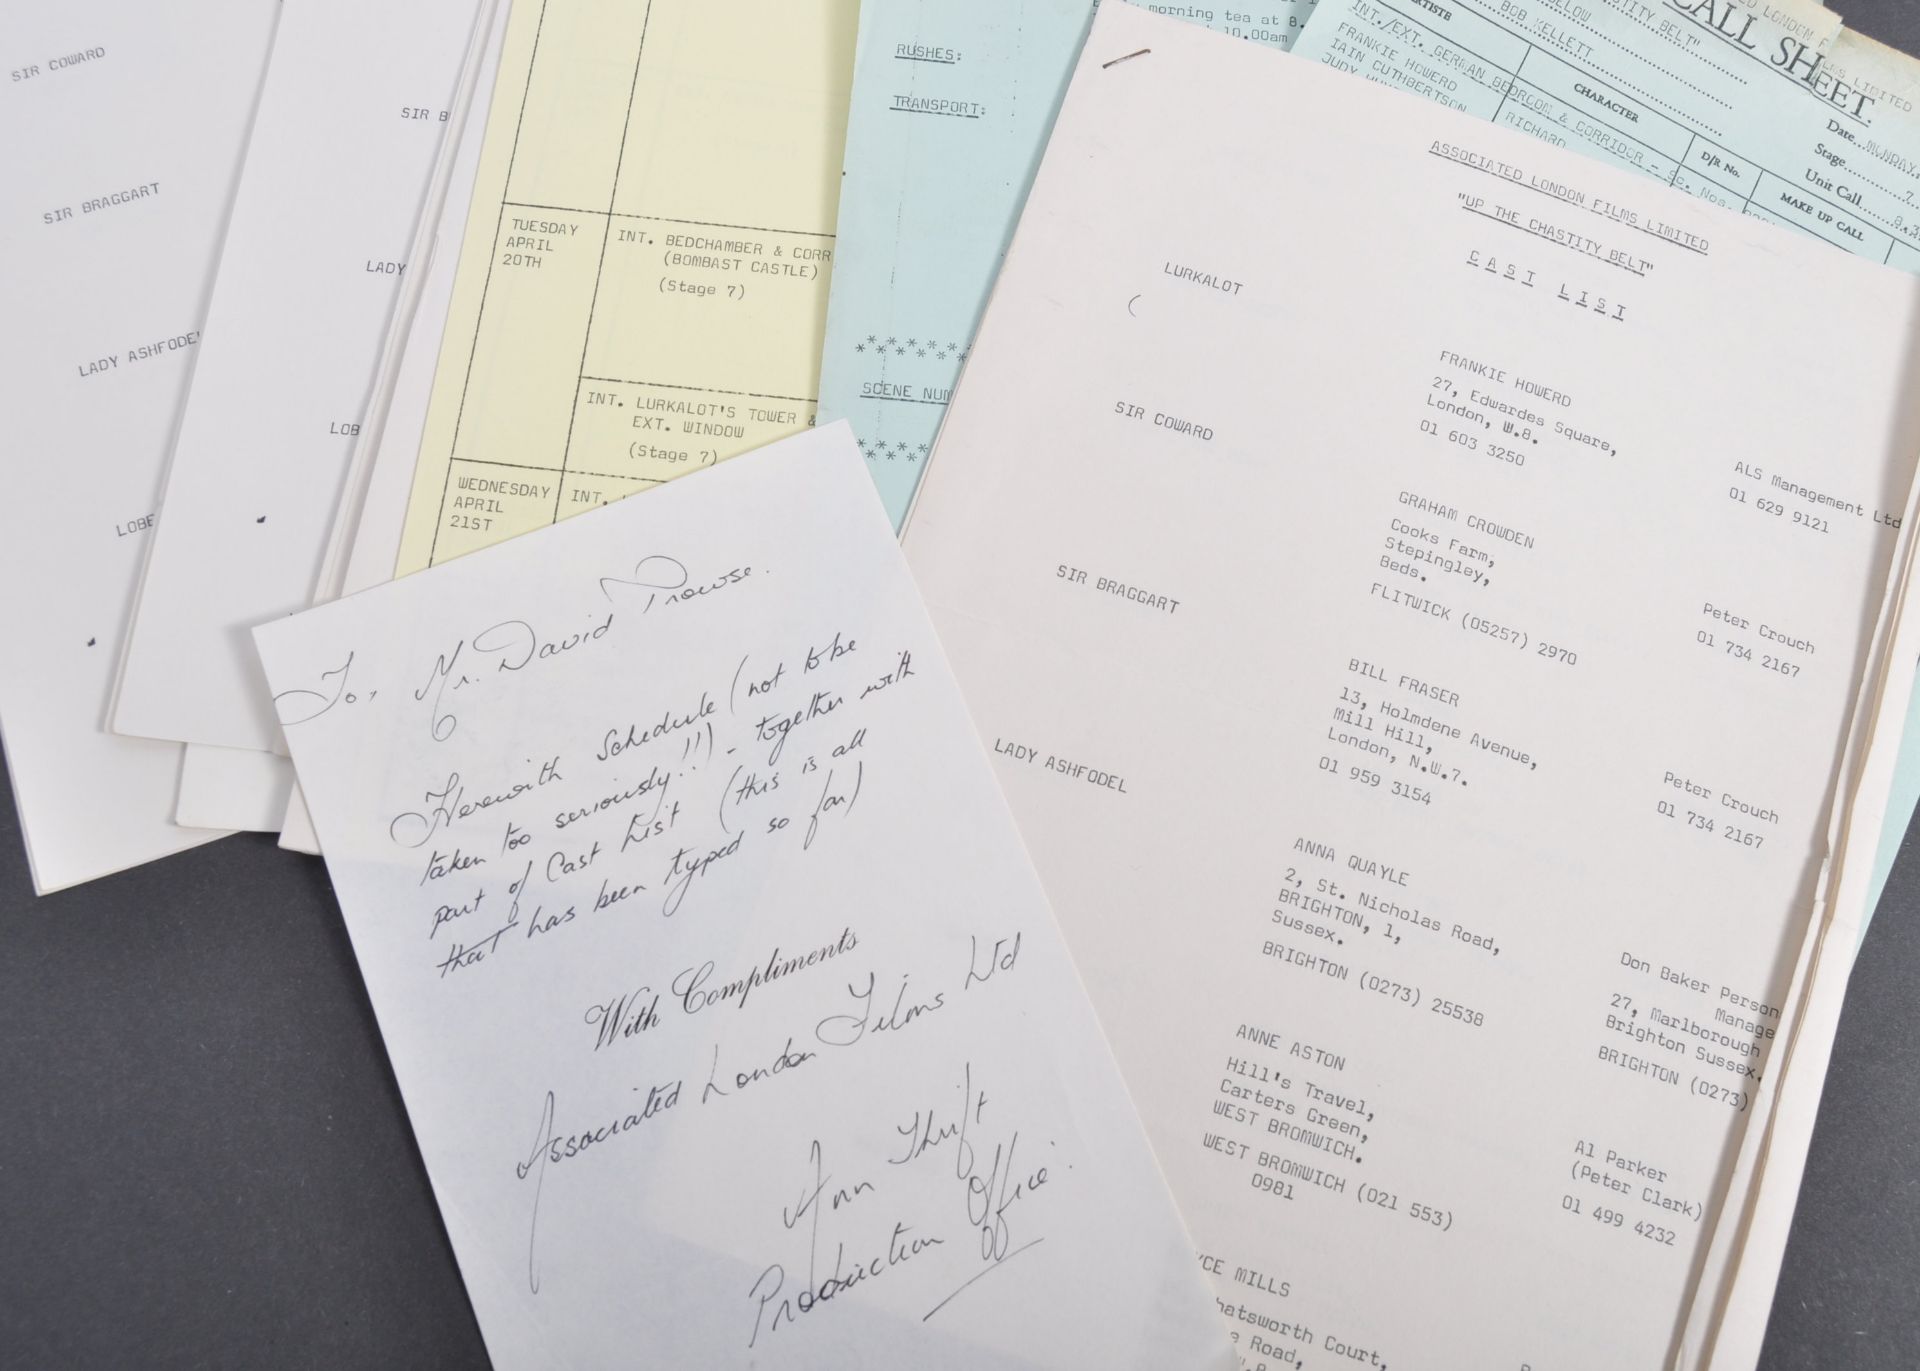 SIR COWARD
SIR BRAGGART
LADY ASHFODE
LOBE
SIR B
LADY
LOB
TUESDAY
APRIL
20TH
INT. BEDCHAMBER & CORR
(BOMBAST CASTLE)
(Stage 7)
INT. LURKALOT'S TOWER &
EXT. WINDOW
(Stage 7)
WEDNESDAY
APRIL
21ST
INT.
morning tea at 8.
10.00am
RUSHES:
TRANSPORT:
SCENE NUM
CALL SHEET.
CHASTITY BELT"
BOB KELLETT
INT./EXT. GERMAN BEDROOM & CORRIDOR - Sc. Nos.
FRANKIE HOWERD
IAIN CUTHBERTSON
JUDY
CHARACTER
RICHARD
D/R No.
MAKE UP CALL
Date...MONDAY,
Stage
Unit Call
ASSOCIATED LONDON FILMS LIMITED
"UP THE CHASTITY BELT"
CAST LIST
LURKALOT
FRANKIE HOWERD
27, Edwardes Square,
London, W.8.
01 603 3250
ALS Management Ltd
01 629 9121
SIR COWARD
GRAHAM CROWDEN
Cooks Farm,
Stepingley,
Beds.
FLITWICK (05257) 2970
Peter Crouch
01 734 2167
SIR BRAGGART
BILL FRASER
13, Holmdene Avenue,
Mill Hill,
London, N.W.7.
01 959 3154
Peter Crouch
01 734 2167
LADY ASHFODEL
ANNA QUAYLE
2, St. Nicholas Road,
BRIGHTON, 1,
Sussex.
BRIGHTON (0273) 25538
Don Baker Person
Manage
27, Marlborough
Brighton Sussex.
BRIGHTON (0273)
ANNE ASTON
Hill's Travel,
Carters Green,
WEST BROMWICH.
WEST BROMWICH (021 553)
0981
Al Parker
(Peter Clark)
01 499 4232
YCE MILLS
hatsworth Court,
e Road,
To, Mr. David Prowse.
Herewith Schedule (not to be
taken too seriously!!!) - together with
part of Cast List (this is all
that has been typed so far)
With Compliments
Associated London Films Ltd
Ann Thrift
Production Office.